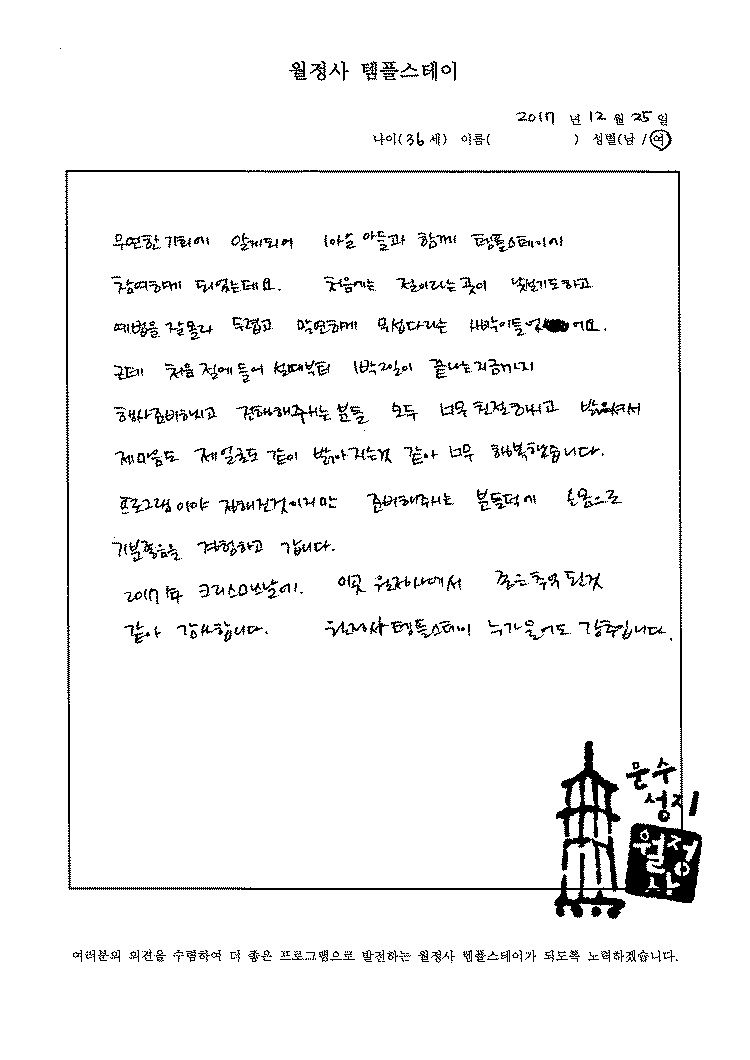 월정사 템플스테이
2017 년 12 월 25 일
나이(36 세) 이름( ) 성별(남 / 여)
우연한 기회에 알게되어 10살 아들과 함께 템플스테이에
참여하게 되었는데요. 처음에는 절이라는 곳이 낯설기도하고
예법을 잘몰라 두렵고 막연하게 무섭다라는 생각이들었어요.
근데 처음 절에 들어 설때부터 1박2일이 끝나는지금까지
행사준비하시고 진행해주시는 분들 모두 너무 친절하시고 밝으셔서
제마음도 제얼굴도 같이 밝아지는것 같아 너무 행복했습니다.
프로그램이야 정해진것이지만 준비해주시는 분들덕에 온몸으로
기분좋음을 경험하고 갑니다.
2017년 크리스마스날에. 이곳 월정사에서 좋은추억 된것
같아 감사합니다. 월정사템플스테이 누가물어도 강추입니다.
문수
성지
월정
사
여러분의 의견을 수렴하여 더 좋은 프로그램으로 발전하는 월정사 템플스테이가 되도록 노력하겠습니다.